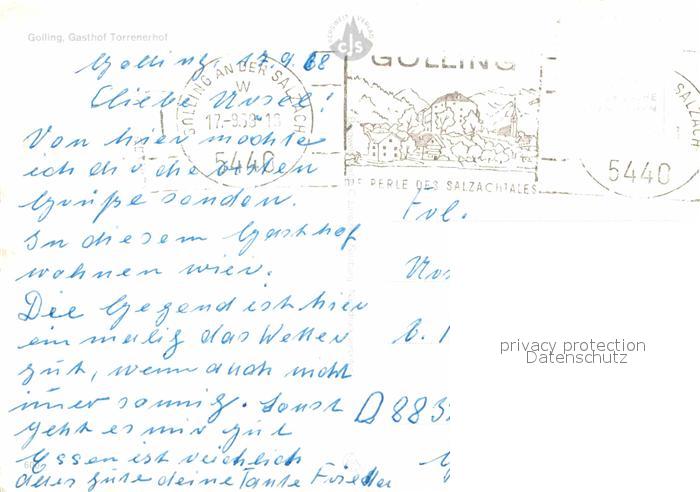 Golling, Gasthof Torrenerhof
CJS
Golling, 17.9.68
Liebe Ursel!
Von hier möchte
ich dir die ersten
Grüße senden.
In diesem Gasthof
wohnen wier.
Die Gegend ist hier
einmalig das Wetter
gut, wenn auch nicht
imer sonnig. Sonst
geht es mir gut
Essen ist reichlich
alles gute deine Tante Frieda
GOLLING AN DER SALZACH
17.-9.68-18
5440
GOLLING
DIE PERLE DES SALZACHTALES
SALZACH
5440
Frl.
D 883
privacy protection
Datenschutz